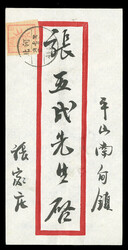 平山南甸鎮
張五氏先生啓
張家庄